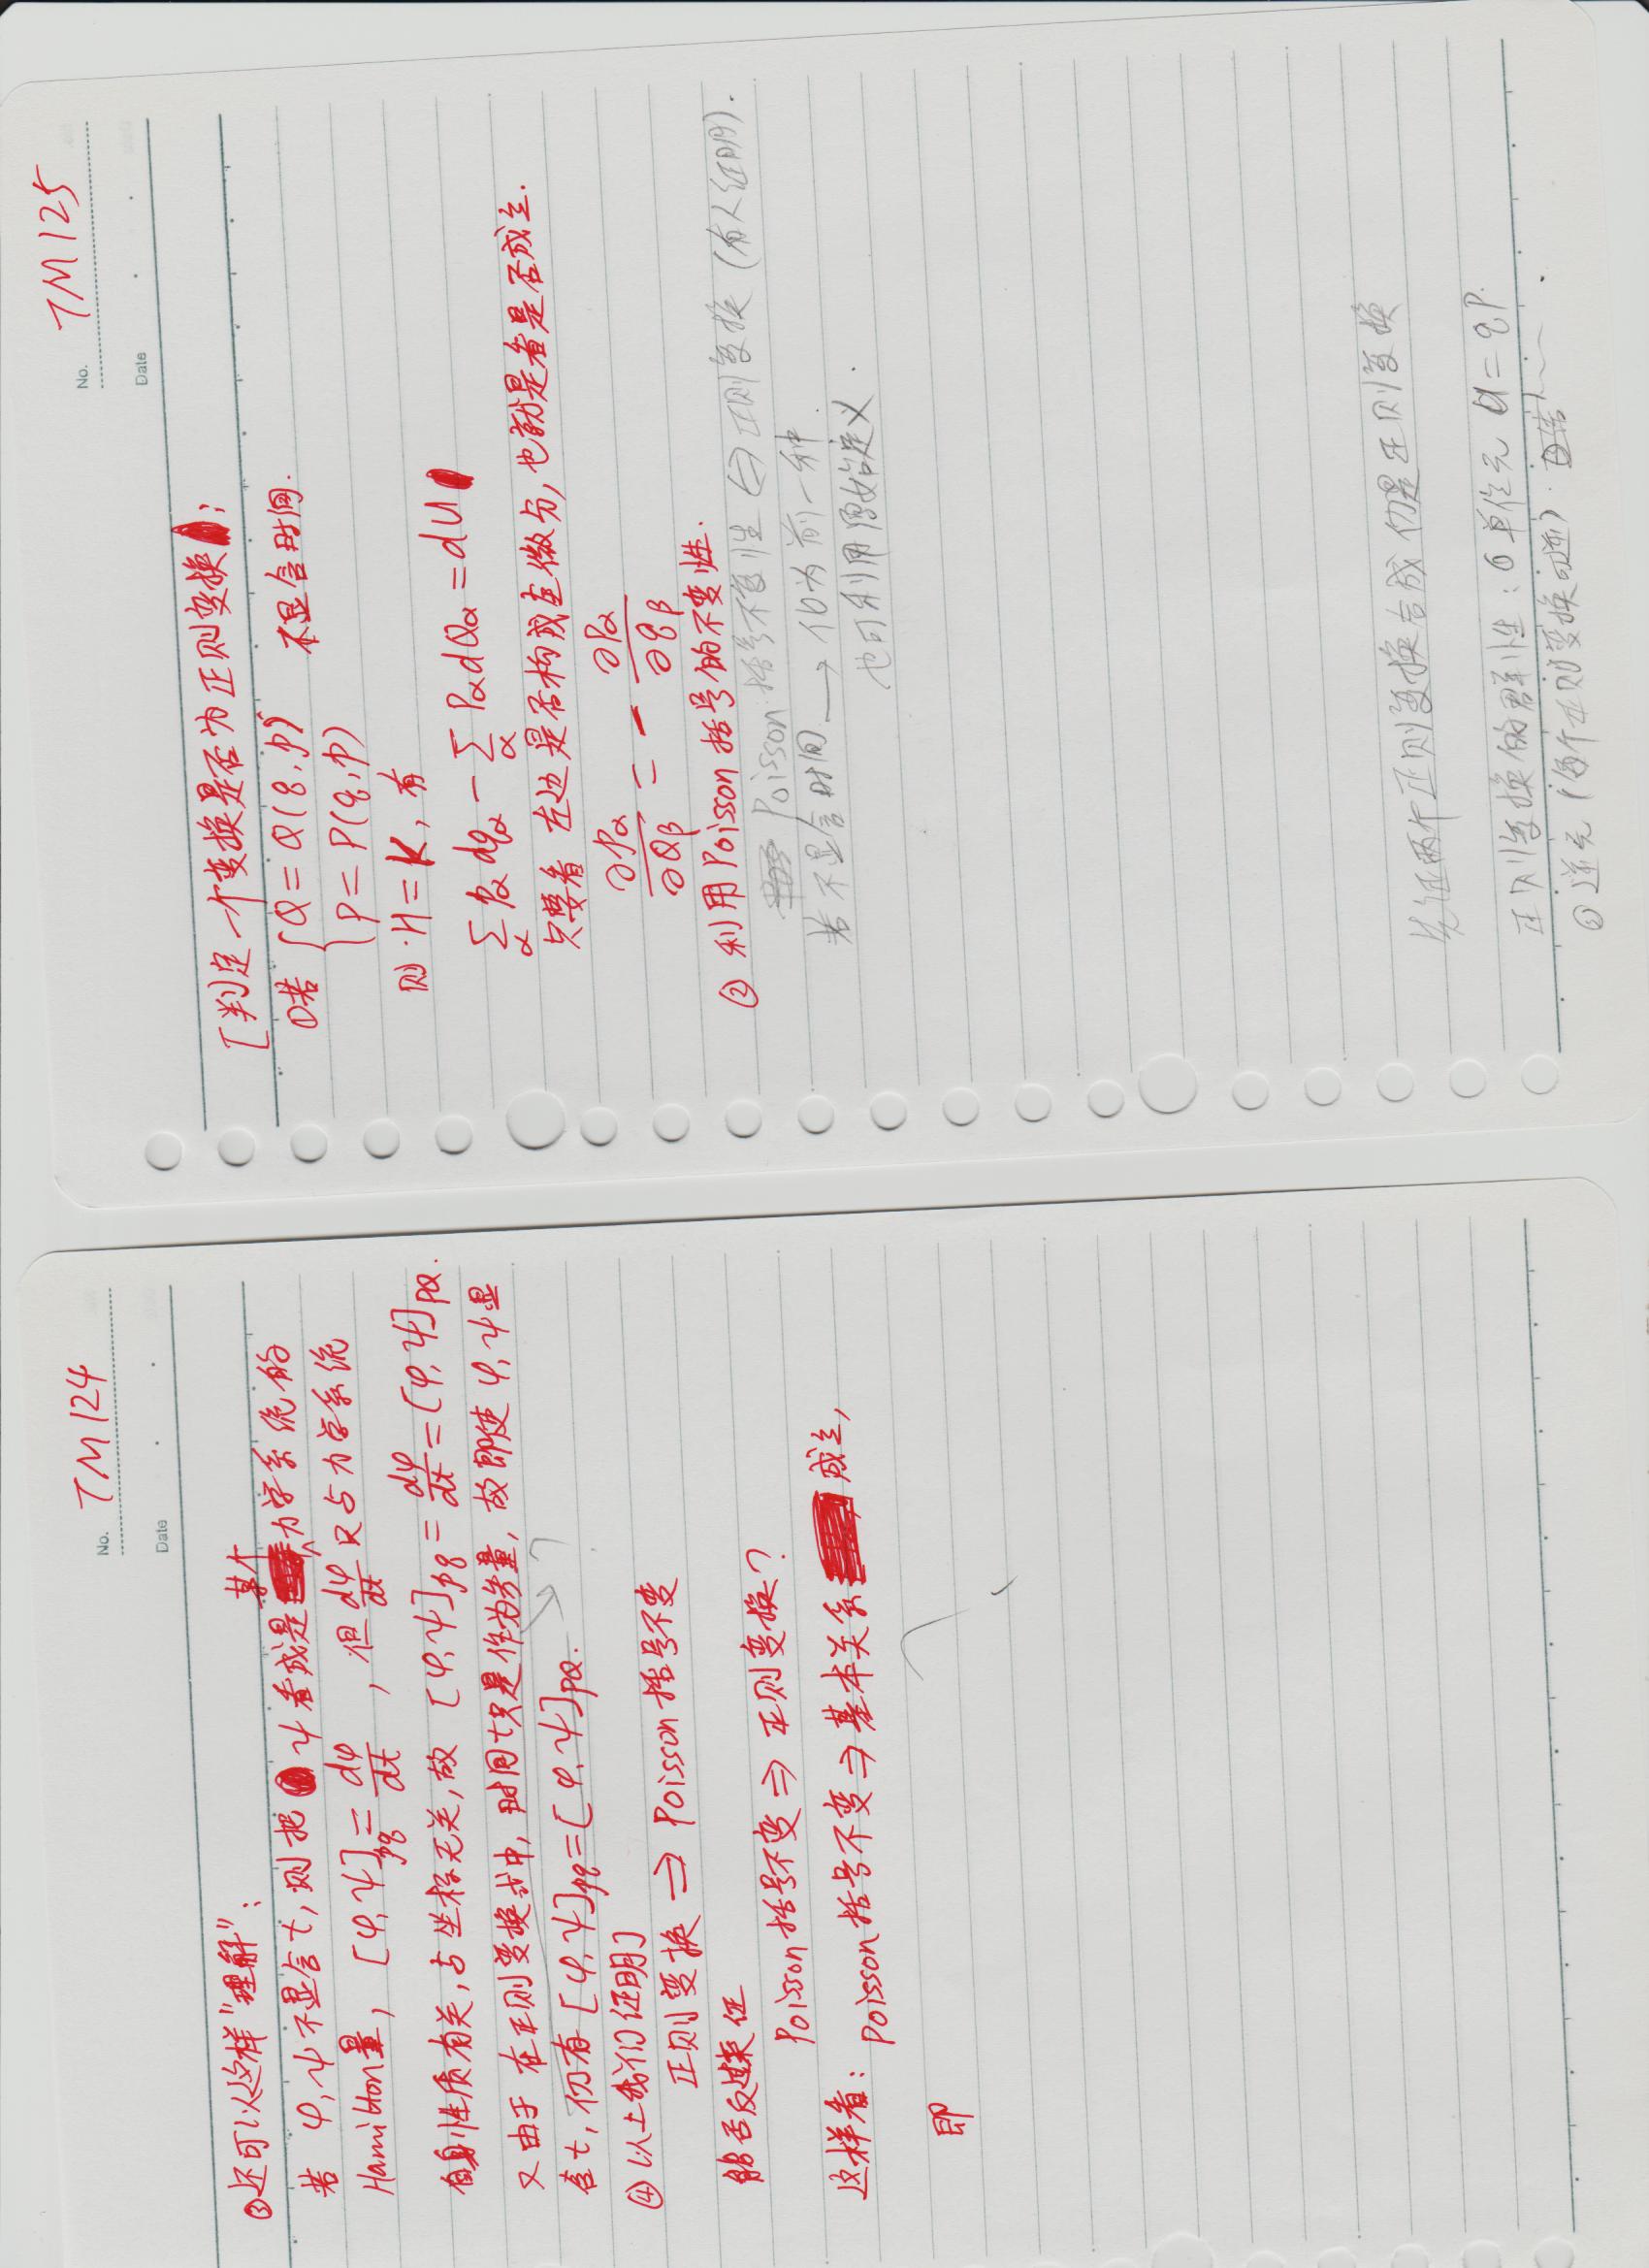 No. TM124
Date
③还可以这样"理解":
若 φ,ψ不显含t,则把ψ看成是某个力学系统的
Hamilton量, [φ,ψ]pq = dφ/dt ,但 dφ/dt 只与力学系统
自身性质有关,与坐标无关,故 [φ,ψ]pq = dφ/dt = [φ,ψ]PQ.
又由于在正则变换式中,时间t只是作为参量,故即使φ,ψ显
含t,仍有[φ,ψ]pq=[φ,ψ]PQ. ?
④以上我们证明了
正则变换 ⇒ Poisson括号不变
能否反过来证
Poisson括号不变 ⇒ 正则变换?
这样看: Poisson括号不变 ⇒ 基本关系 成立,
即
No. TM125
Date
[判定一个变换是否为正则变换:
①若 { Q = Q(q,p) 不显含时间.
P = P(q,p)
则·H = K, 有
∑α pα dqα - ∑α Pα dQα = dU
只要看 左边是否构成全微分,也就是看是否成立.
∂pα/∂Qβ = - ∂Pα/∂qβ
② 利用Poisson括号的不变性.
Poisson括号不变性 ⇔ 正则变换 (有人证明).
若不显含时间 → 化为前一种.
也可利用原始定义.
先证两个正则变换合成仍是正则变换
正则变换的群性: ① 单位元 U = qP.
② 逆元 (每个正则变换可逆).